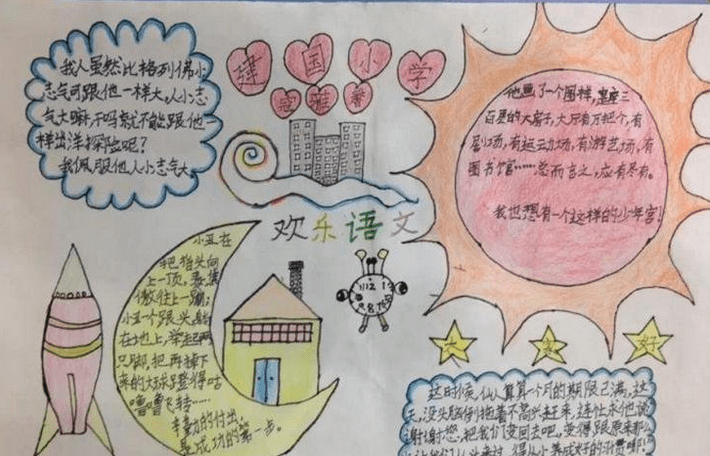 建国小学
寇雅馨
我人虽然比格列佛小
志气可跟他一样大。人小志
气大嘛,干吗就不能跟他一
样出洋探险呢?
我佩服他人小志气大。
他画了一个图样,
百层的大房子,大厅有万把个,有
有运动场,有游艺场,有
图书馆……总而言之,应有尽有。
我也想有一个这样的少年宫!
欢乐语文
小丑在
把指头向
上一顶,
傲往上一蹦;
小丑一个跟头
在地上,举起两
只脚,把再掉下
来的大球蹬得咕
噜噜飞转……
辛勤的付出,
是成功的第一步。
12
大家好
这时候,仙人算算一个月的期限已满,这
天,没头脑倒拖着不高兴赶来,连忙求他说
谢谢您,把我们变回去吧,变得跟原来那么